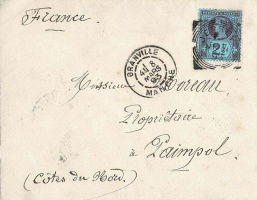 France.
GRANVILLE
8
MARS
93
MANCHE
Monsieur Doreau
Propriétaire
à Paimpol.
(Côtes du Nord.)